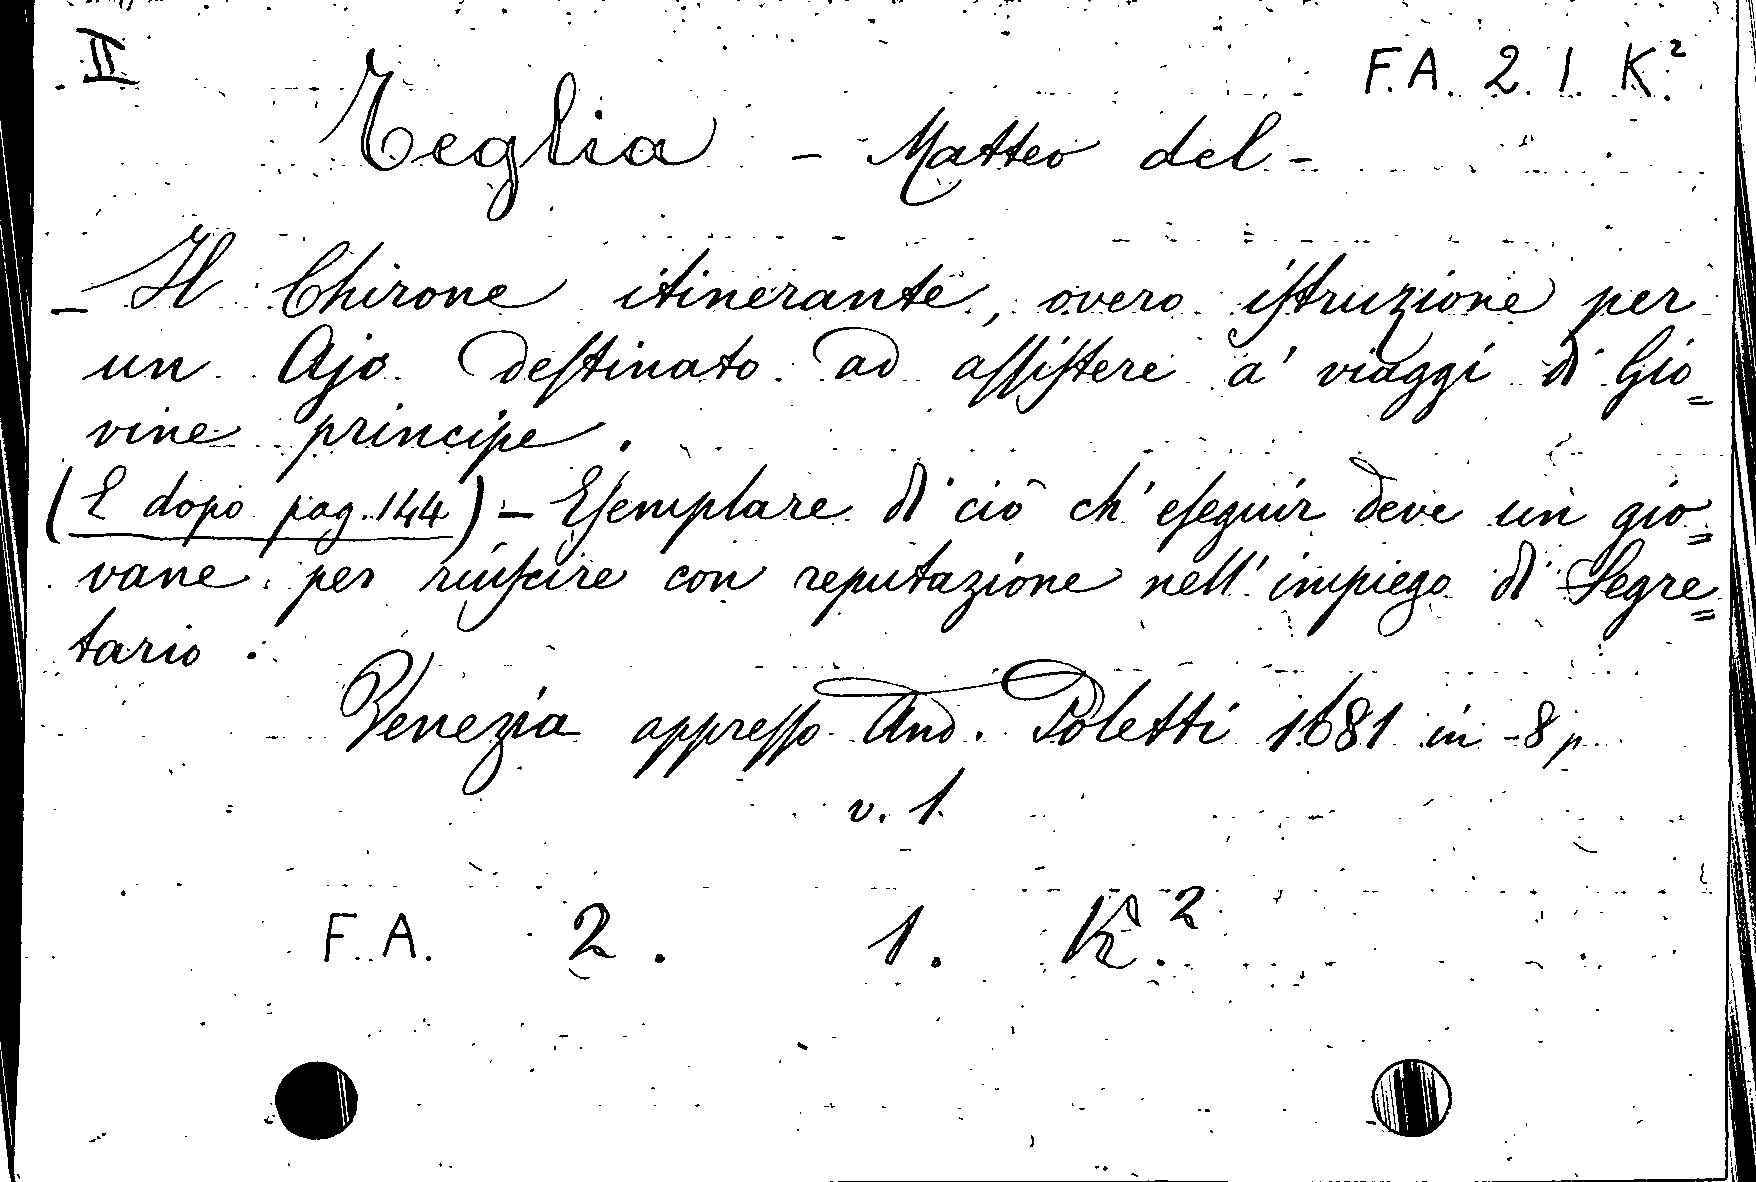 II
F. A. 2. 1. K.²
Teglia - Matteo del -
- Il Chirone itinerante, overo iſtruzione per
un Ajo deſtinato ad aſſiſtere a' viaggi di Gio=
vine principe.
(E dopo pag. 144) - Eſemplare di ciò ch' eſeguir deve un gio=
vane per riuſcire con reputazione nell' impiego di Segre=
tario.
Venezia appreſſo And. Poletti 1681 in -8 p.
v. 1
F. A. 2. 1. K.²